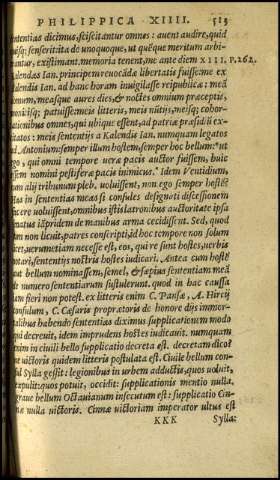 PHILIPPICA XIIII. 513
sententias dicimus, sciscitantur omnes: auent audire, quid
quisq; senserit: ita de unoquoque, ut quemque meritum arbi-
trantur, existimant. memoria tenent, me ante diem XIII. P.262.
Kalendas Ian. principem reuocandæ libertatis fuisse: me ex
Kalendis Ian. ad hanc horam inuigilasse reipublicæ: med
domum, measque aures dies, & noctes omnium præceptis,
monitisq; patuisse: meis litteris, meis nutijs, meisq; cohor-
tationibus omnes, qui ubique essent, ad patriæ præsidiū ex-
citatos: meis sententijs a Kalendis Ian. numquam legatos
ad Antonium: semper illum hostem, semper hoc bellum: ut
ego, qui omni tempore ueræ pacis auctor fuissem, huic
essem nomini pestiferæ pacis inimicus. Idem Ventidium,
cum alij tribunum pleb. uoluissent, non ego semper hostē?
Has in sententias meas si consules designati discessionem
facere uoluissent, omnibus istis latronibus auctoritate ipsa
senatus iāpridem de manibus arma cecidissent. Sed, quod
tum non licuit, patres conscripti, id hoc tempore non solum
licet, uerumetiam necesse est, eos, qui re sunt hostes, uerbis
notari, sententijs nostris hostes iudicari. Antea cum hostē
aut bellum nominassem, semel, & sæpius sententiam med
de numero sententiarum sustulerunt. quod in hac caussa
iam fieri non potest. ex litteris enim C. Pansæ, A. Hirtij
consulum, C. Cæsaris proprætoris de honore dijs immor-
talibus habendo sententias dicimus. supplicationem modo
qui decreuit, idem imprudens hostes iudicauit. numquam
enim in ciuili bello supplicatio decreta est. decretam dico?
ne uictoris quidem litteris postulata est. Ciuile bellum con-
sul Sylla gessit: legionibus in urbem adductis, quos uoluit,
expulit: quos potuit, occidit: supplicationis mentio nulla.
graue bellum Octauianum insecutum est: supplicatio Cin-
næ nulla uictoris. Cinnæ uictoriam imperator ultus est
KKK Sylla: